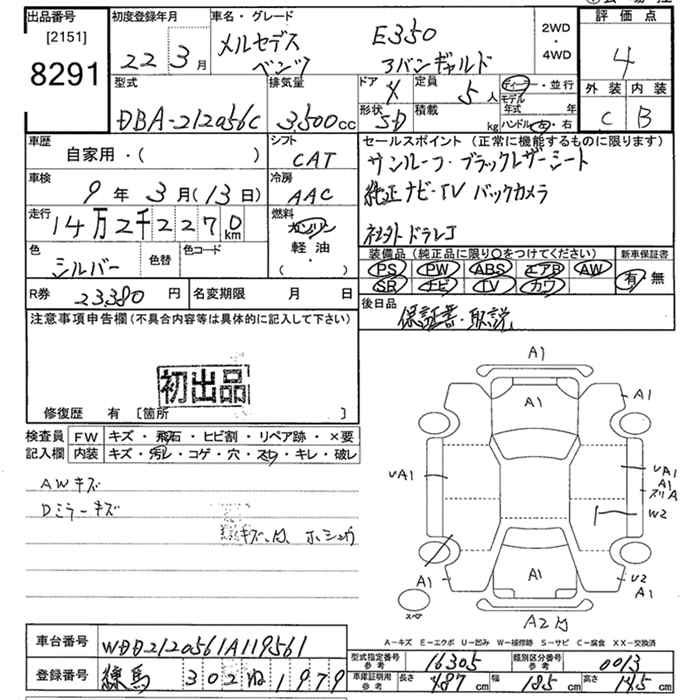 出品番号
[2151]
8291
初度登録年月
22年3月
車名・グレード
メルセデス
ベンツ
E350
アバンギャルド
2WD
・
4WD
評価点
4
外装 内装
C B
型式
DBA-212056C
排気量
3,500cc
ドア
4
定員
5人
形状
SD
積載
kg
ディーラー・並行
モデル
年式 年
ハンドル 左・右
車歴
自家用・( )
シフト
CAT
車検
9年3月(13日)
冷房
AAC
走行
14万2千2270km
燃料
ガソリン
軽油
( ・ )
色
シルバー
色替
色コード
R券 23,380円
名変期限 月 日
セールスポイント (正常に機能するものに限ります)
サンルーフ・ブラックレザーシート
純正ナビ・TV バックカメラ
社外ドラレコ
装備品 (純正品に限り○をつけてください)
PS PW ABS エアB AW
SR ナビ TV カワ
新車保証書
有 無
後日品
保証書・取説
注意事項申告欄(不具合内容等は具体的に記入して下さい)
初出品
修復歴 有 [箇所 ]
検査員
記入欄
FW キズ・飛石・ヒビ割・リペア跡・×要
内装 キズ・汚レ・コゲ・穴・スレ・キレ・破レ
AWキズ
Dミラーキズ
A1
A1
A1
UA1
UA1
A1
スリA
W2
A1
A1
U2
A1
スペア
A2
A-キズ E-エクボ U-凹み W-補修跡 S-サビ C-腐食 XX-交換済
車台番号 WDD2120561A119561
登録番号 練馬 302 ね 1979
型式指定番号
参考
16305
類別区分番号
参考
0013
車庫証明用
参考
長さ 487cm 幅 185cm 高さ 145cm